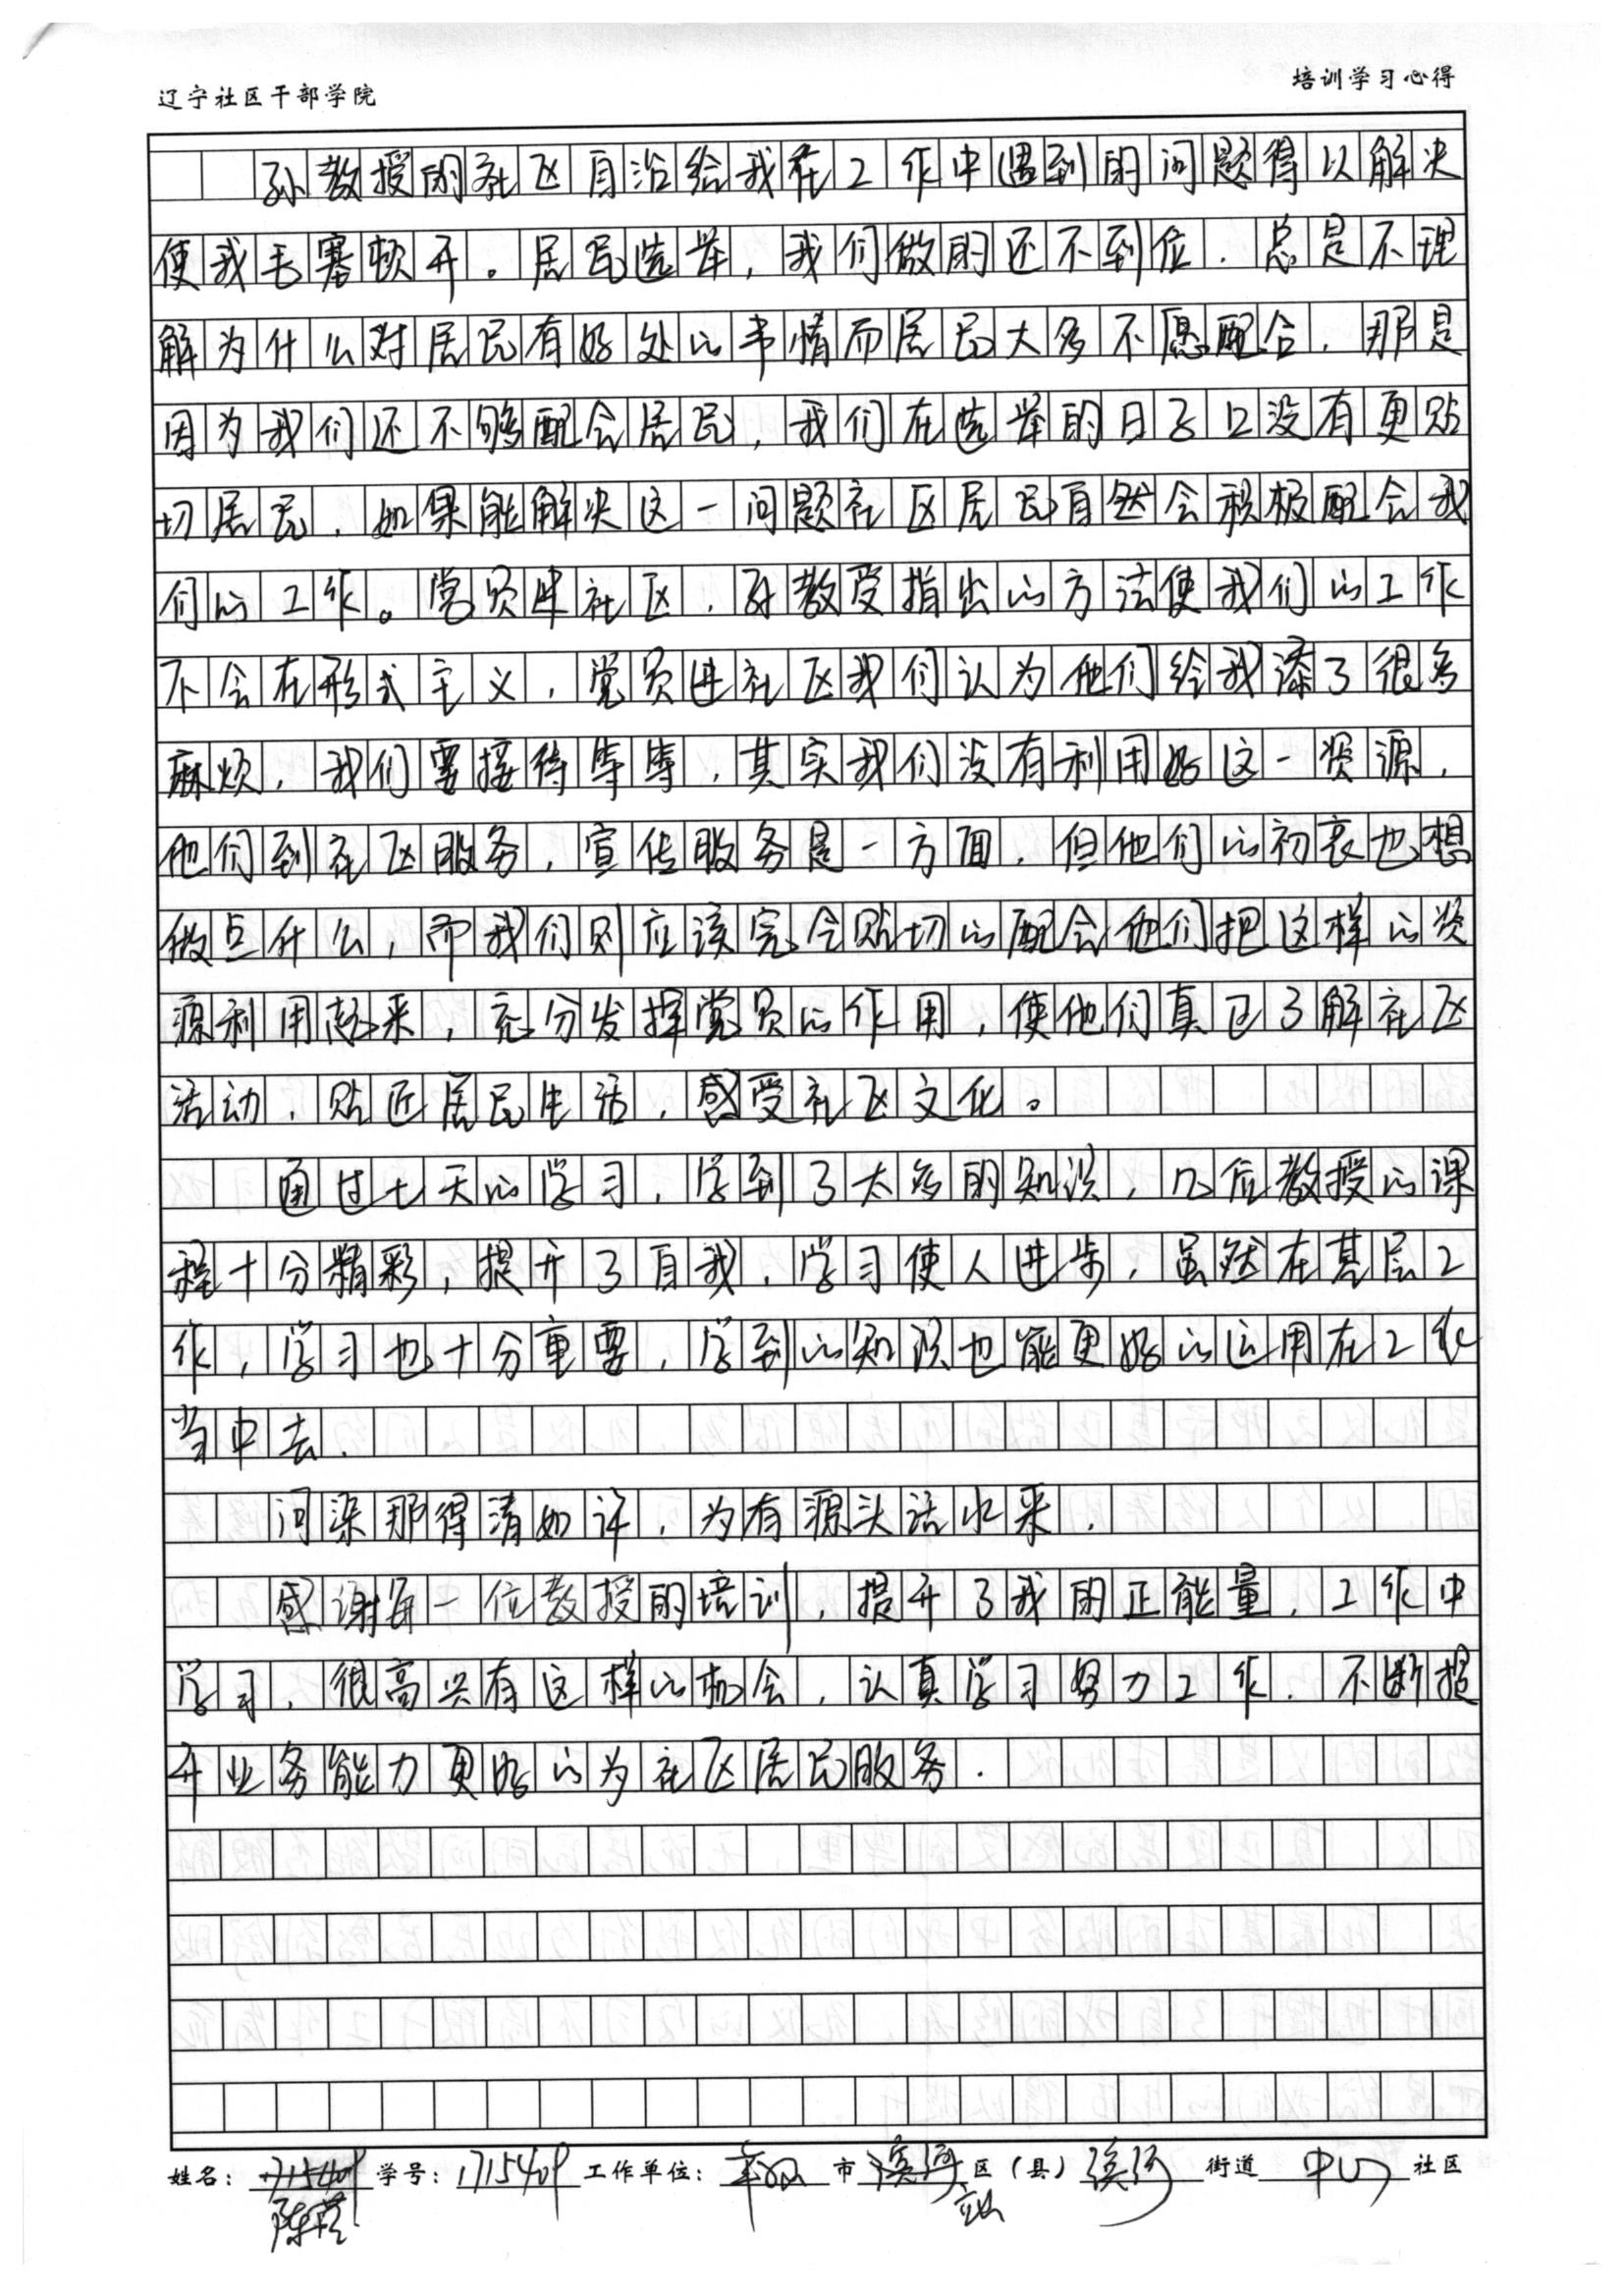 辽宁社区干部学院
培训学习心得
孙教授的社区自治给我在工作中遇到的问题得以解决
使我毛塞顿开。居民选举,我们做的还不到位.总是不理
解为什么对居民有好处的事情而居民大多不愿配合,那是
因为我们还不够配合居民,我们在选举的日子口没有更贴
切居民,如果能解决这一问题社区居民自然会积极配合我
们的工作。党员进社区,孙教受指出的方法使我们的工作
不会在形式主义,党员进社区我们认为他们给我添了很多
麻烦,我们要接待等等,其实我们没有利用好这一资源,
他们到社区服务,宣传服务是一方面,但他们的初衷也想
做点什么,而我们则应该完全贴切的配合他们把这样的资
源利用起来,充分发挥党员的作用,使他们真正了解社区
活动,贴近居民生活,感受社区文化。
通过七天的学习,学到了太多的知识,几位教授的课
程十分精彩,提升了自我,学习使人进步,虽然在基层工
作,学习也十分重要,学到的知识也能更好的运用在工作
当中去.
问渠那得清如许,为有源头活水来.
感谢每一位教授的培训,提升了我的正能量,工作中
学习,很高兴有这样的机会,认真学习努力工作.不断提
升业务能力更好的为社区居民服务.
姓名: 学号:1715409 工作单位: 市 区(县)滨河 街道 中心 社区